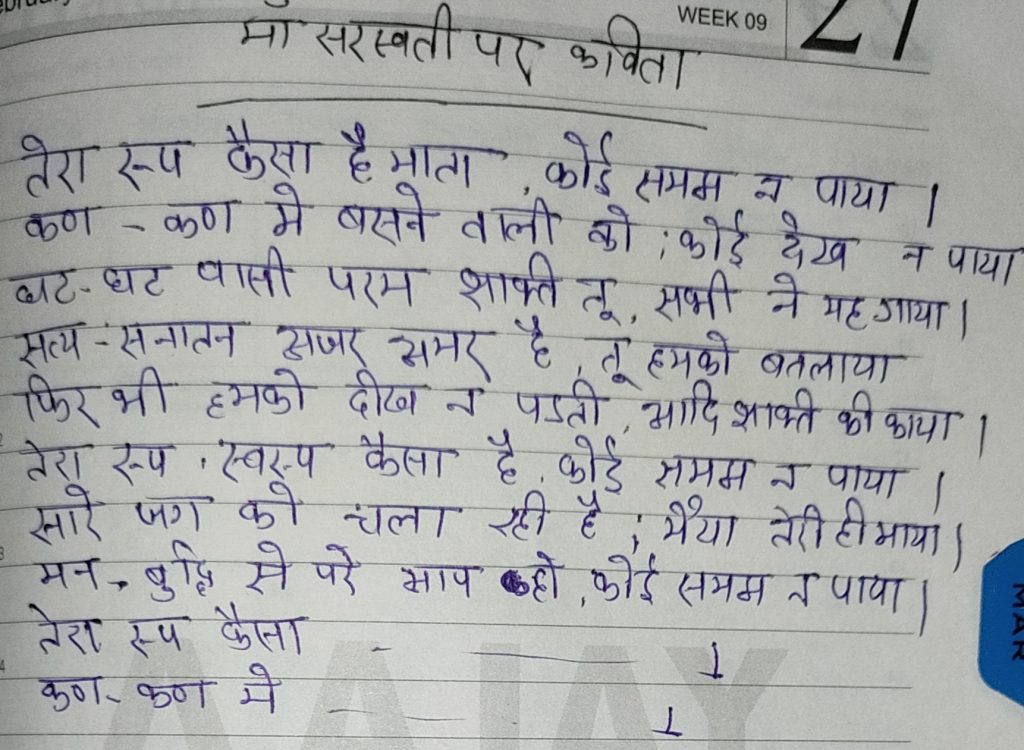 WEEK 09
27
मा सरस्वती पर कविता
तेरा रूप कैसा है माता , कोई समझ न पाया ।
कण - कण मे बसने वाली को ; कोई देख न पाया
घट-घट वासी परम शक्ति तू , सभी ने यह गाया ।
सत्य - सनातन अजर अमर है , तू हमको बतलाया
फिर भी हमको दीख न पडती , आदि शक्ति की काया ।
तेरा रूप , स्वरूप कैसा है , कोई समझ न पाया ।
सारे जग को चला रही है ; मैया तेरी ही माया ।
मन , बुद्धि से परे आप हो , कोई समझ न पाया ।
तेरा रूप कैसा - ——— ।
कण - कण मे ——— ।
MAR